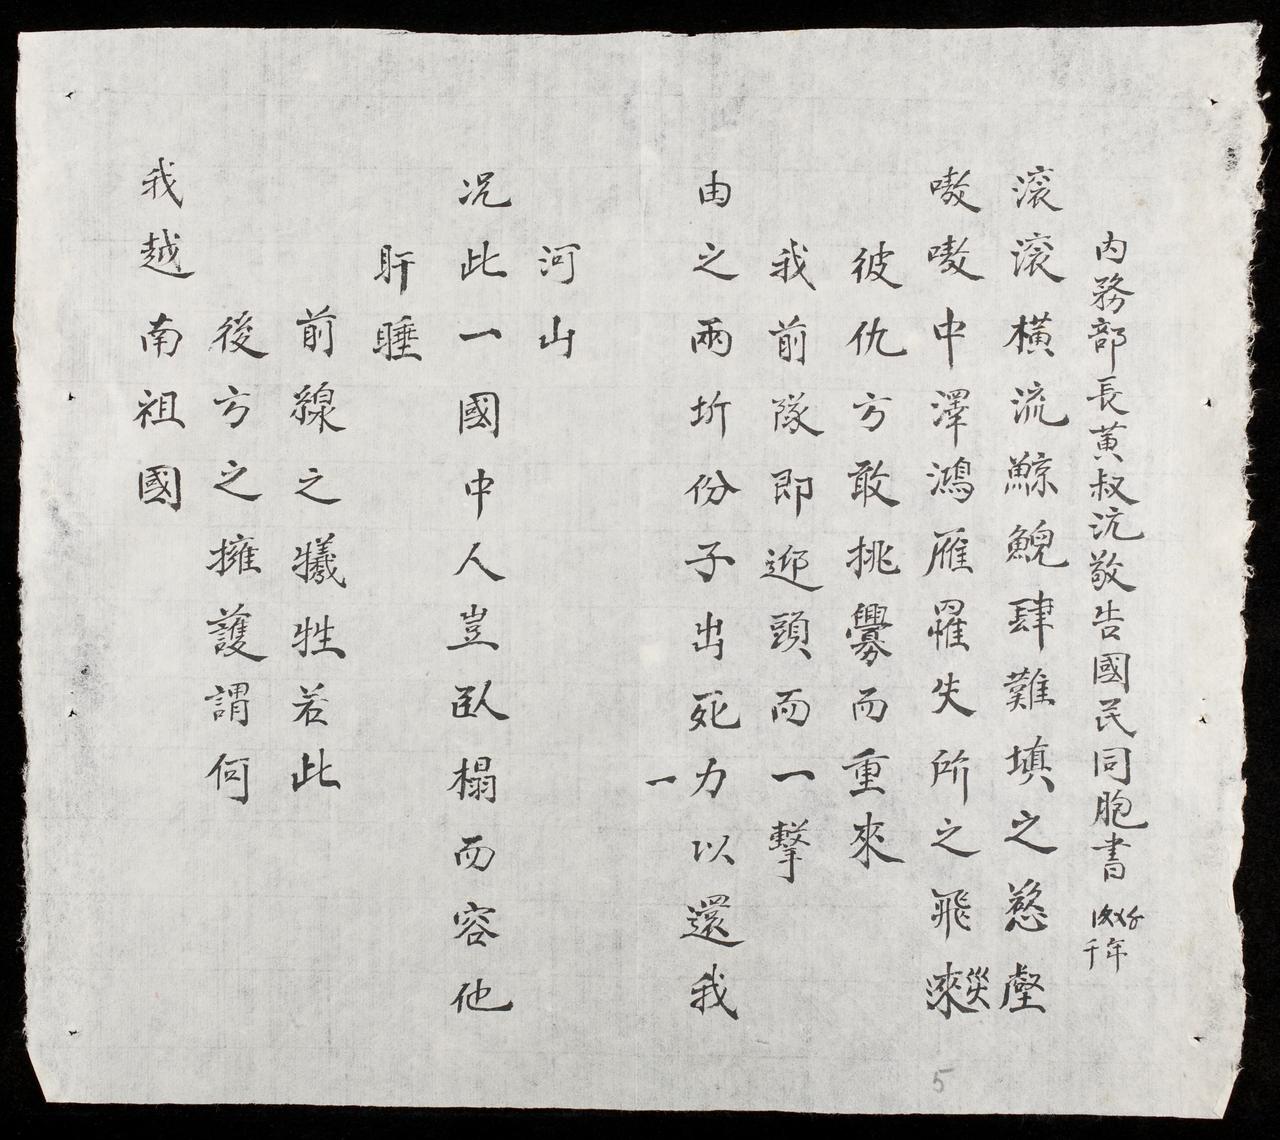 內務部長黃叔沆敬告國民同胞書
千年
滚滚橫流鯨鯢肆難填之慾壑
嗷嗷中澤鴻雁罹失所之飛災
彼仇方敢挑釁而重來
我前隊即迎頭而一擊
由之兩圻份子出死力以還我
一
河山
况此一國中人豈臥榻而容他
鼾睡
前線之犧牲若此
後方之擁護謂何
我越南祖國
5